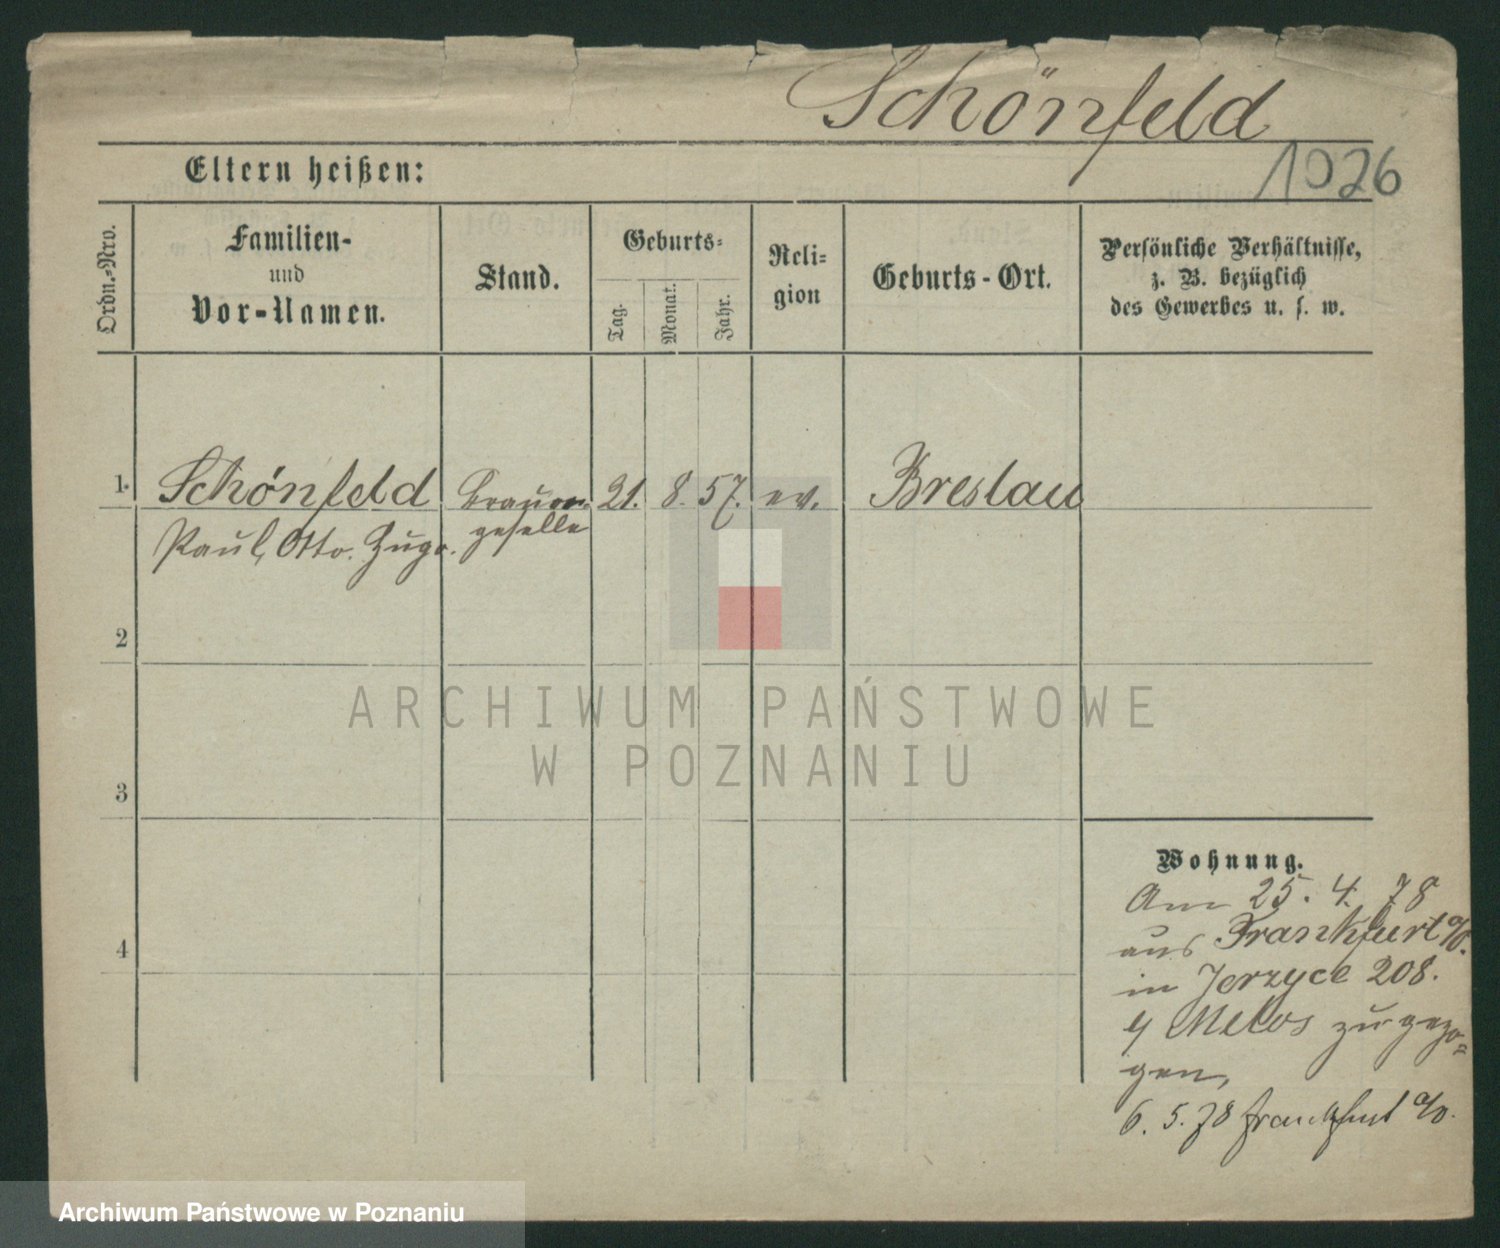 Schönfeld
1926
Eltern heißen:
Ordn.-Nro.
Familien-
und
Vor-Namen.
Stand.
Geburts-
Tag.
Monat.
Jahr.
Reli-
gion
Geburts-Ort.
Persönliche Verhältnisse,
z. B. bezüglich
des Gewerbes u. s. w.
1. Schönfeld Brauer- 21. 8. 57. ev. Breslau
Paul, Otto, Hugo. geselle
2
3
4
ARCHIWUM PAŃSTWOWE
W POZNANIU
Wohnung.
Am 25. 4. 78
aus Frankfurt a/O.
in Jerzyce 208.
zugezo-
gen,
6. 5. 78 Frankfurt a/O.
Archiwum Państwowe w Poznaniu